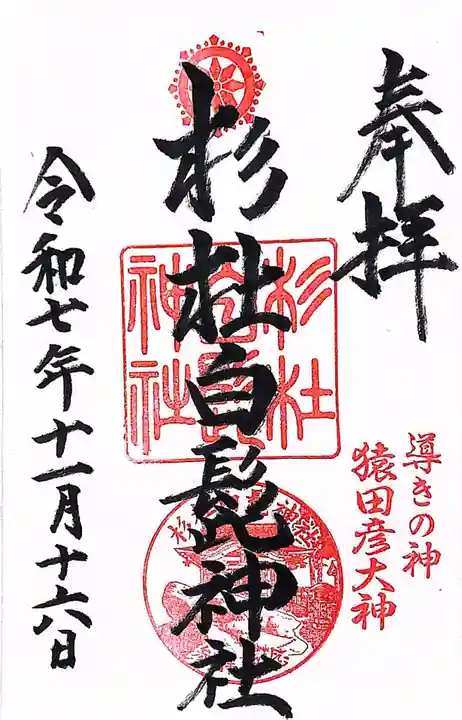 奉拝
導きの神
猿田彦大神
杉杜白髭神社
杉杜
白髭
神社
令和七年十一月十六日